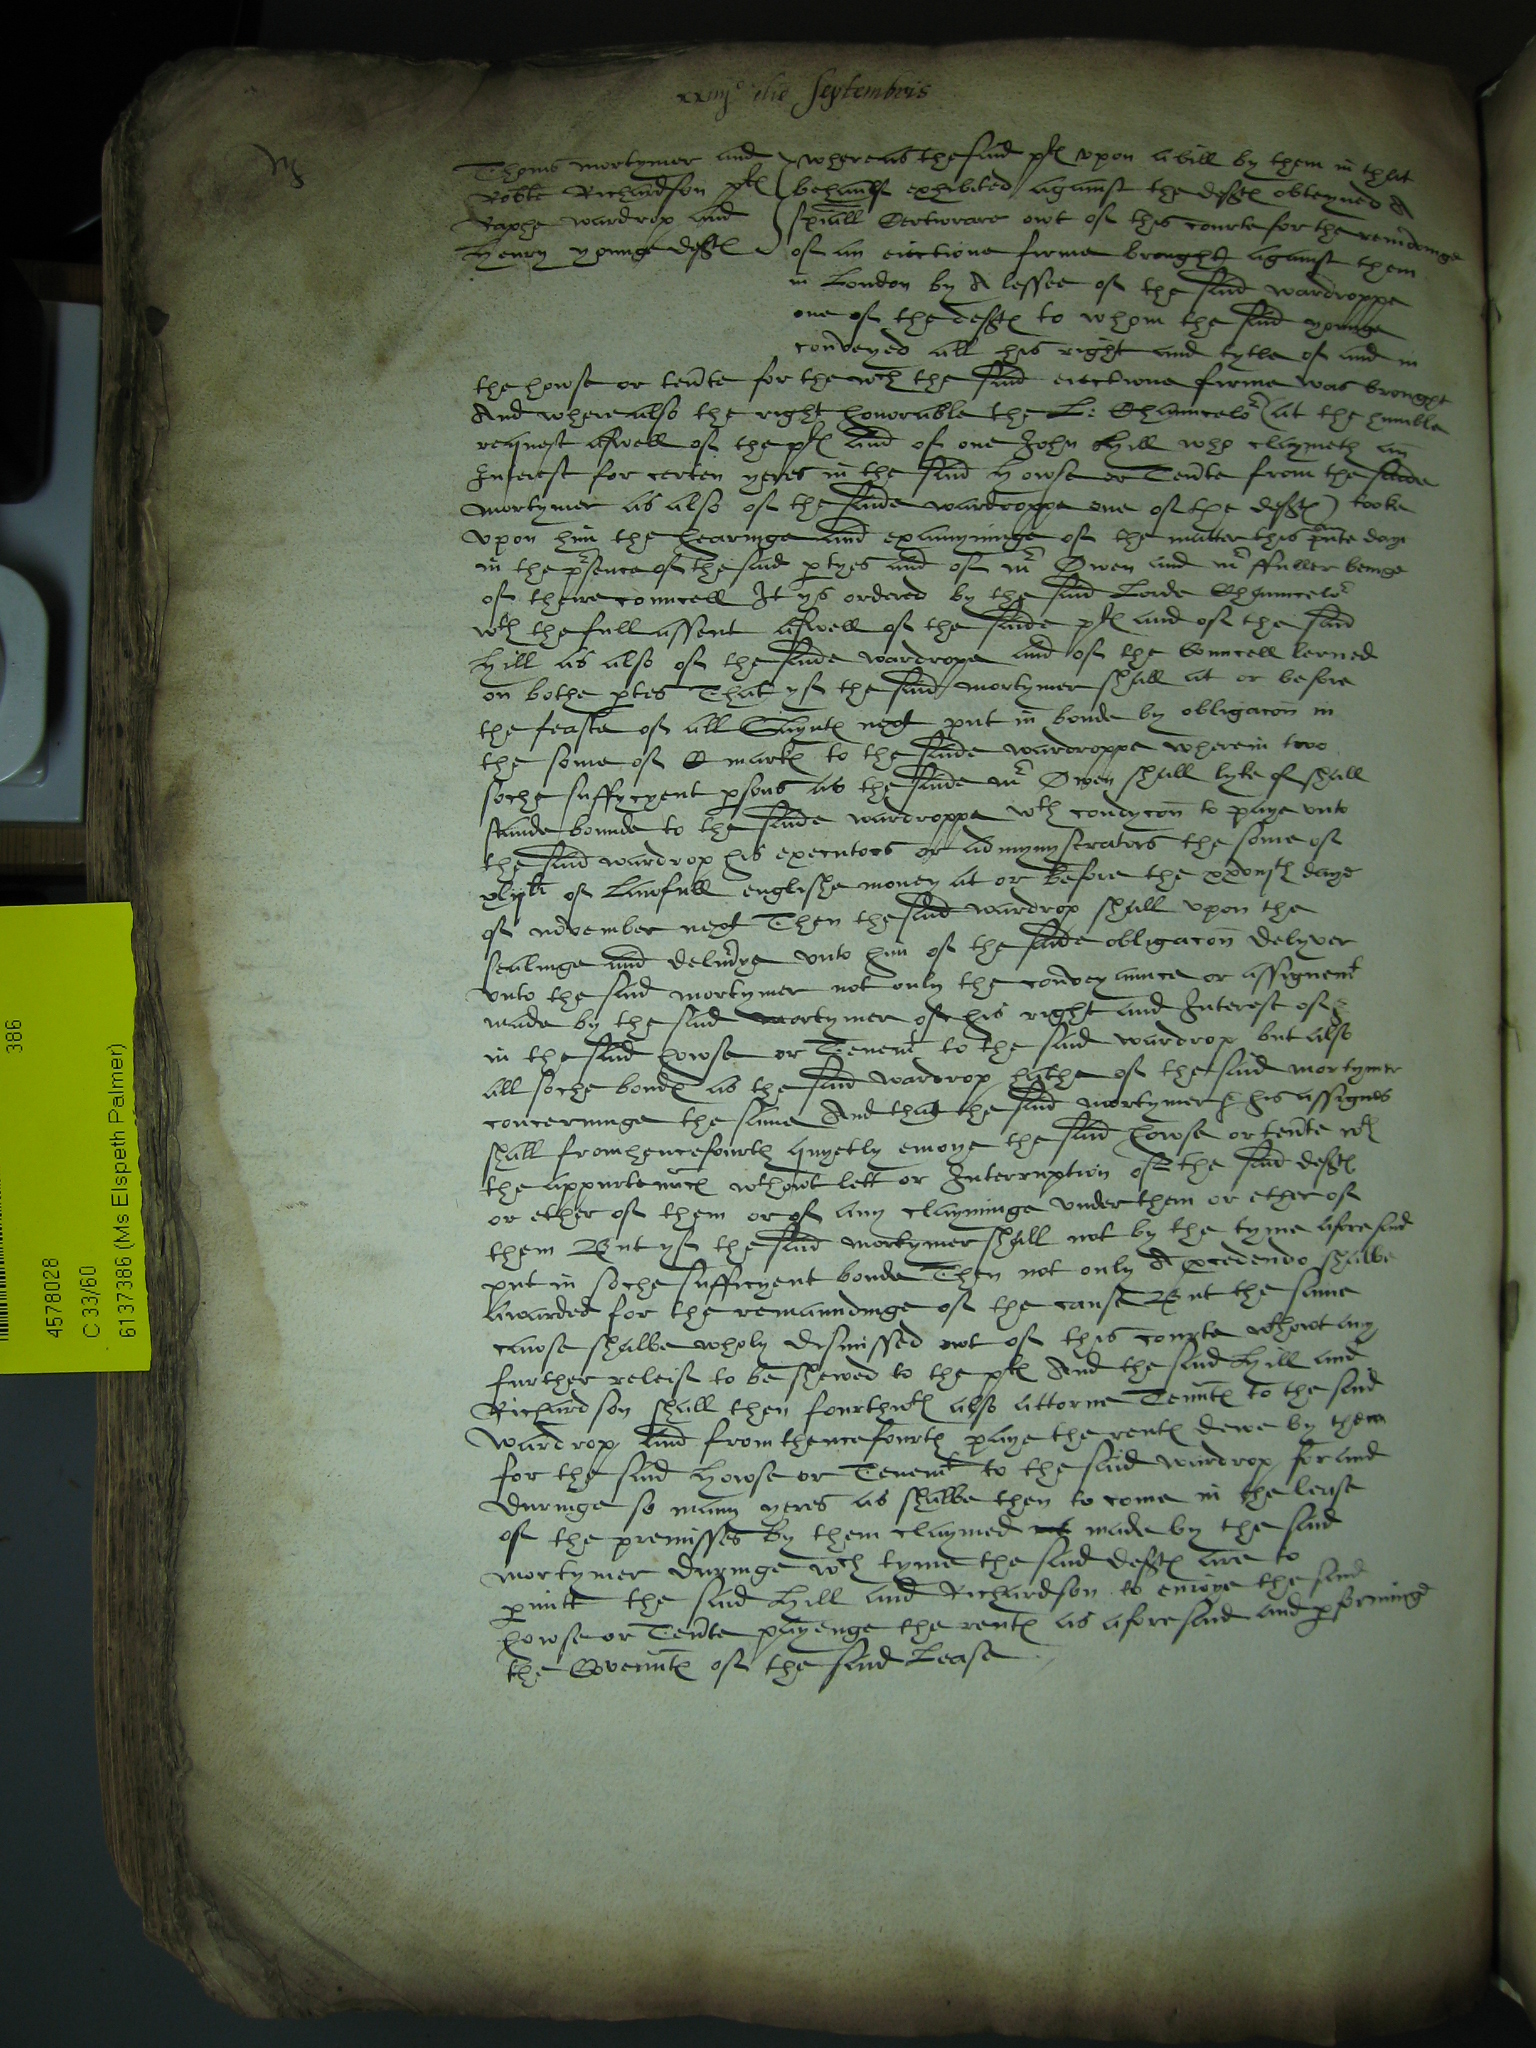 xxiiijo die Septembris
M
Thoms Mortymer and
Robte Richardson pltes
Raphe Wardrop and
Henry Younge defftes
Whereas the said pltes vpon a bill by them in that
behaulf exhibited against the defftes obteyned A
spiall Certiorare owt of this courte for the remōvinge
of an eiectione firme broughte against them
in London by A lessee of the said Wardroppe
one of the defftes to whom the said Younge
conveyed all his right and tytle of and in
the howse or tente for the wch the said eiectione firme was brought
And where also the right honorable the L: Chauncelor (at the humble
request aswell of the pltes and of one John Hill who claymeth an
Interest for certen yeres in the said Howse or Tente from the saide
Mortymer as also of the saide Wardroppe one of the defftes) tooke
vpon him the hearinge and examyninge of the matter this pnte daye
in the prsence of the said ptyes and of Mr Owen and Mr ffuller beinge
of theire councell It ys ordered by the said Lorde Chauncelor
wth the full assent aswell of the saide pltes and of the said
Hill as also of the saide Wardrope and of the Councell lerned
on bothe ptes That yf the said Mortymer shall at or before
the feaste of all Sayntes next put in bonde by obligacon in
the some of C markes to the saide Wardroppe wherein two
soche suffycyent psons as the saide Mr Owen shall lyke of shall
stande bounde to the saide Wardroppe wth condycon to paye vnto
the said Wardrop his executors or admynystrators the some of
xlijli of Lawfull englishe money at or before the xxvjth daye
of November next Then the said Wardrop shall vpon the
sealinge and deliūye vnto him of the saide obligacon delyver
vnto the said Mortymer not only the conveyaunce or assignemt
made by the said Mortymer of his right and Interest of &
in the said howse or Tenemt to the said Wardrop but also
all soche bondes as the said Wardrop hathe of the said Mortymer
concerninge the same And that the said Mortymer & his assignes
shall fromhencefourth quyetly enioye the said howse or tente wth
the appurtennces wthowt lett or Interruption of the said defftes
or ether of them or of any clayminge vnder them or ether of
them But yf the said Mortymer shall not by the tyme aforesaid
put in soche sufficyent bonde Then not only A pcedendo shalbe
Awarded for the remaundinge of the cause But the same
cause shalbe wholy dismissed owt of this courte wthowt any
further releif to be shewed to the pltes And the said Hill and
Richardson shall then fourthwth also attorne Tenntes to the said
Wardrop and from thencefourth paye the rentes dewe by them
for the said Howse or Tenemt to the said Wardrop for and
duringe so many yeres as shalbe then to come in the lease
of the premisses by them claymed made by the said
Mortymer duringe wch tyme the said defftes are to
pmitt the said Hill and Richardson to enioye the said
howse or Tente payenge the rentes as aforesaid and pforminge
the Covenntes of the said Lease
386
4578028
C 33/60
6137386 (Ms Elspeth Palmer)